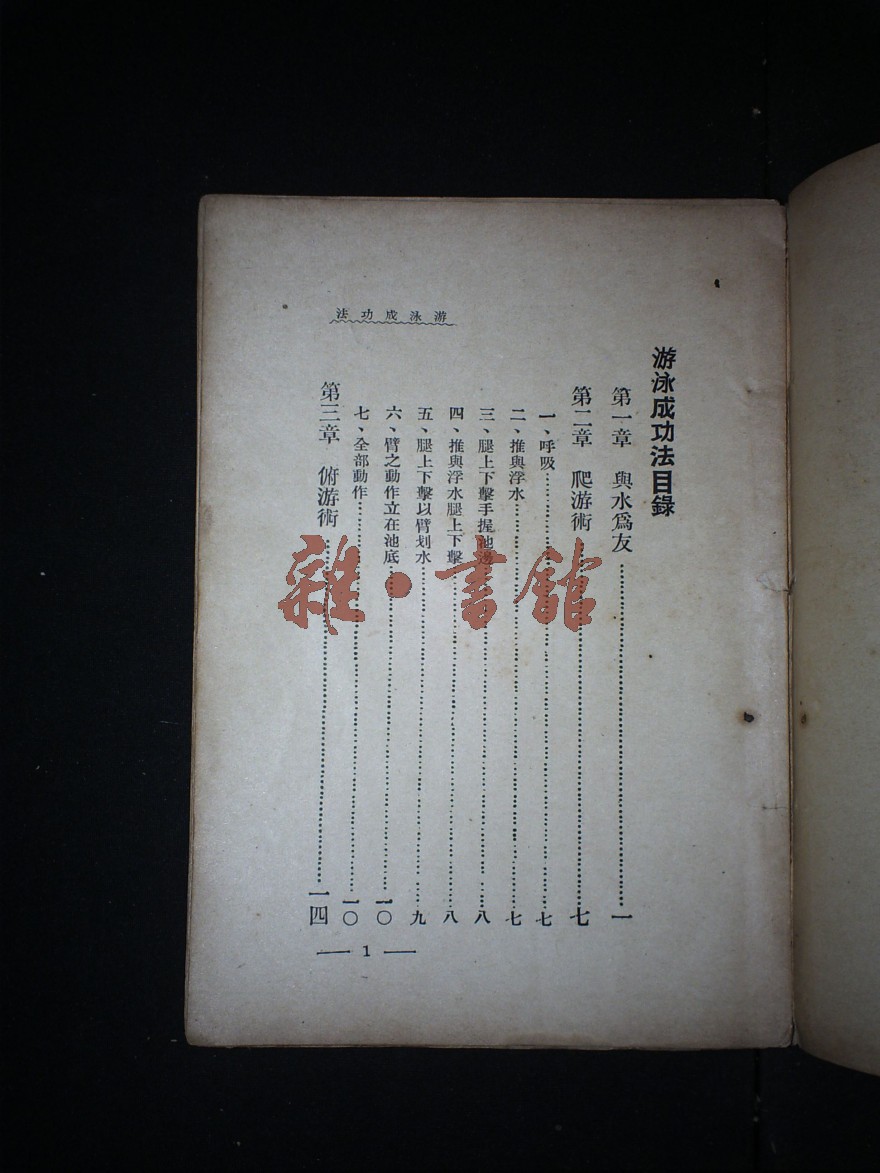 游泳成功法
游泳成功法目錄
第一章　與水爲友…………一
第二章　爬游術…………七
一、呼吸…………七
二、推與浮水…………七
三、腿上下擊手握池邊…………八
四、推與浮水腿上下擊…………八
五、腿上下擊以臂划水…………九
六、臂之動作立在池底…………一〇
七、全部動作…………一〇
第三章　俯游術…………一四
— 1 —
雜·書館